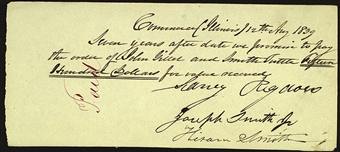 Commerce (Illinois) 12th Aug 1839
Seven years after date we promise to pay
the order of John Gillet and Smith Tuttle fifteen
Hundred Dollars for value received
Sidney Rigdon
Joseph Smith Jr
Hiram Smith
Paid